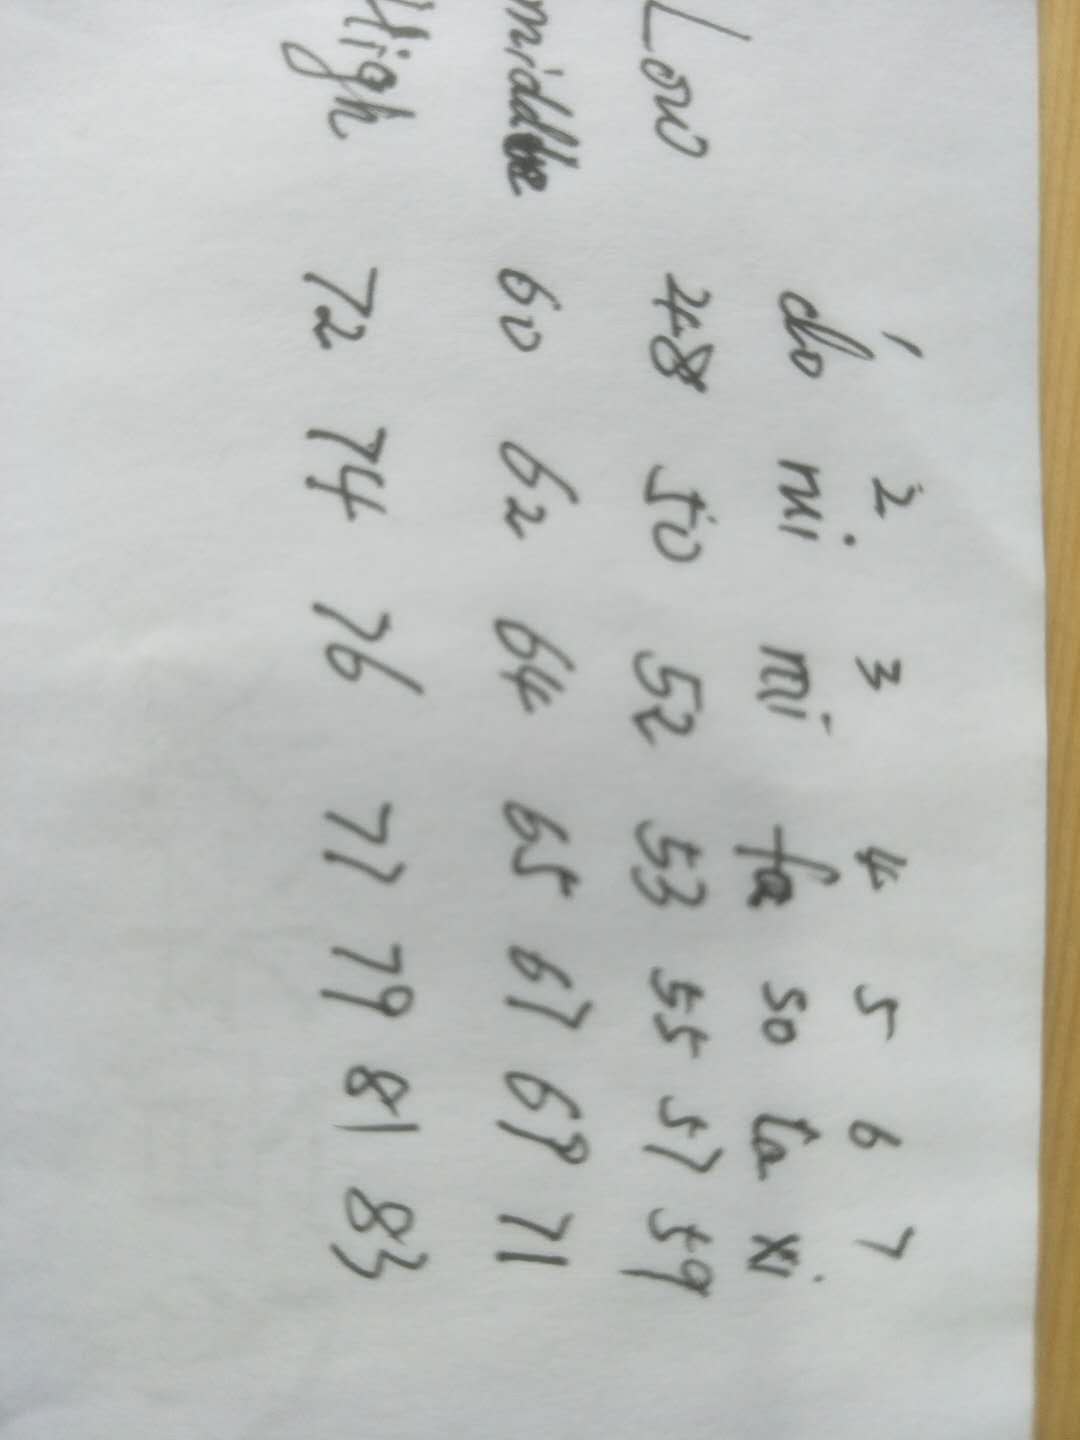 1 2 3 4 5 6 7
do rui mi fa so la xi
Low 48 50 52 53 55 57 59
middle 60 62 64 65 67 69 71
High 72 74 76 77 79 81 83